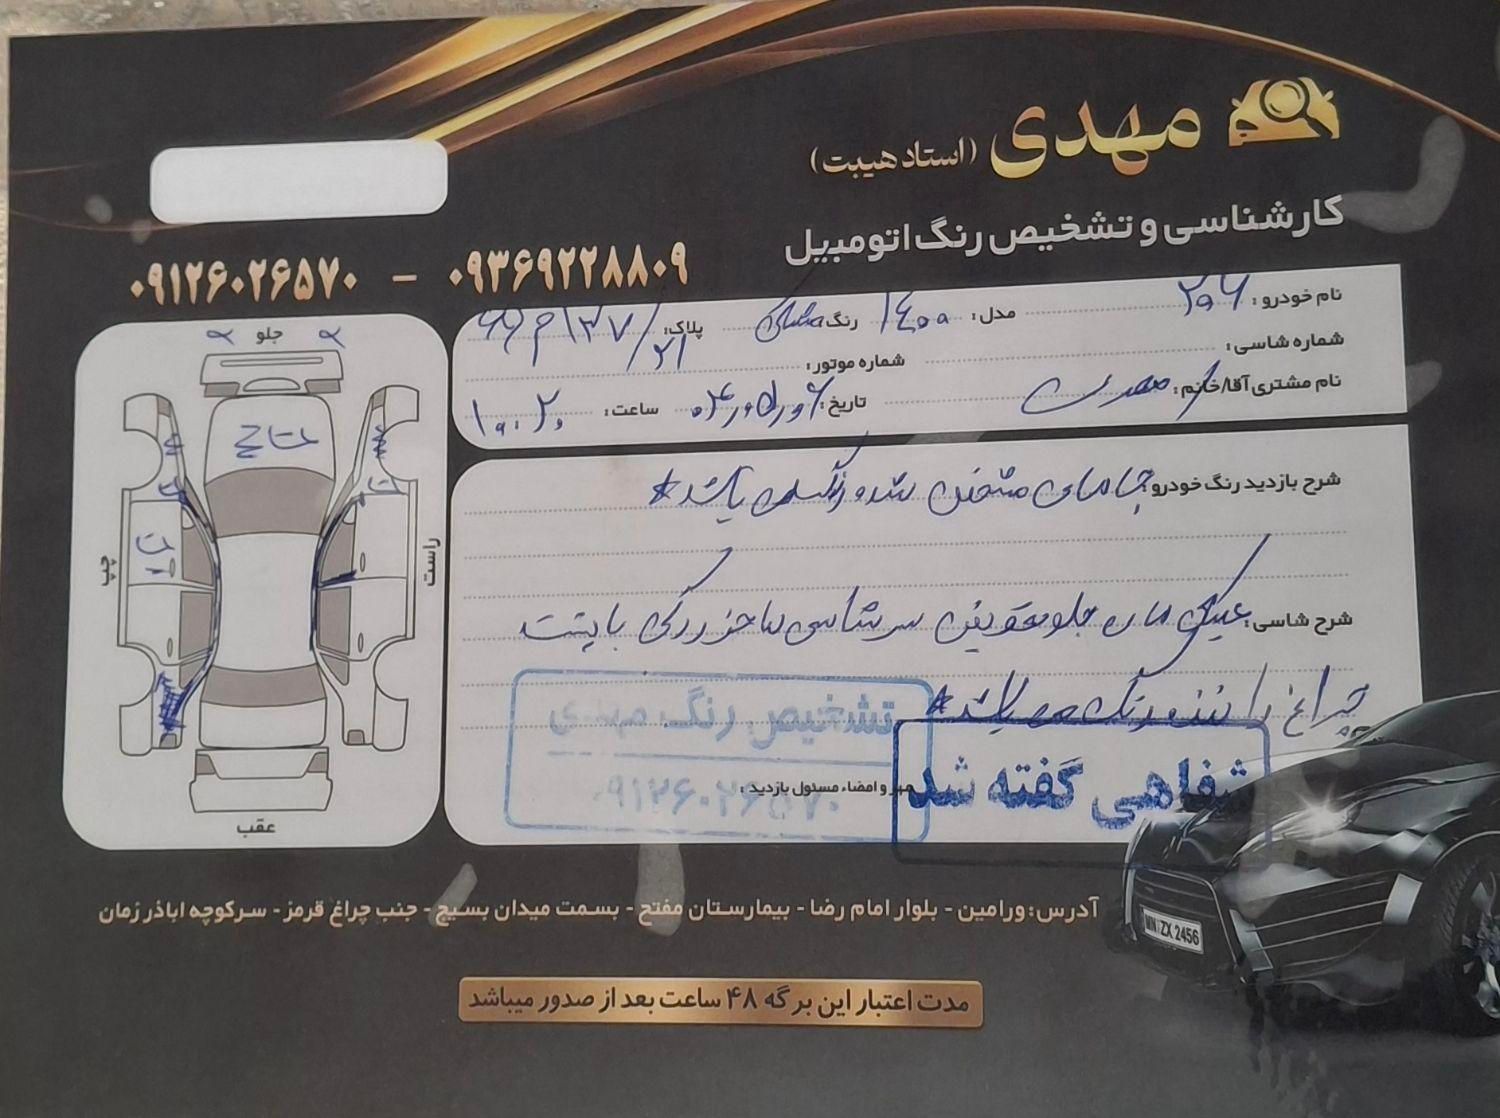 مهدی (استاد هیبت)
کارشناسی و تشخیص رنگ اتومبیل
۰۹۱۲۶۰۲۶۵۷۰ - ۰۹۳۶۹۲۲۸۸۰۹
نام خودرو: ۲۰۶ مدل: ۱۴۰۰ رنگ: مشکی پلاک:
شماره شاسی: شماره موتور:
نام مشتری آقا/خانم: تاریخ: ساعت: ۱۰:۲۰
جلو
راست
چپ
عقب
شرح بازدید رنگ خودرو: جاهای مشخص شده رنگ می باشد*
شرح شاسی: جلو تعویض سرشاسی
چراغ راننده رنگ می باشد*
تشخیص رنگ مهدی
۰۹۱۲۶۰۲۶۵۷۰
مهر و امضاء مسئول بازدید:
شفاهی گفته شد
MN ZX 2456
آدرس: ورامین - بلوار امام رضا - بیمارستان مفتح - بسمت میدان بسیج - جنب چراغ قرمز - سرکوچه اباذر زمان
مدت اعتبار این برگه ۴۸ ساعت بعد از صدور میباشد